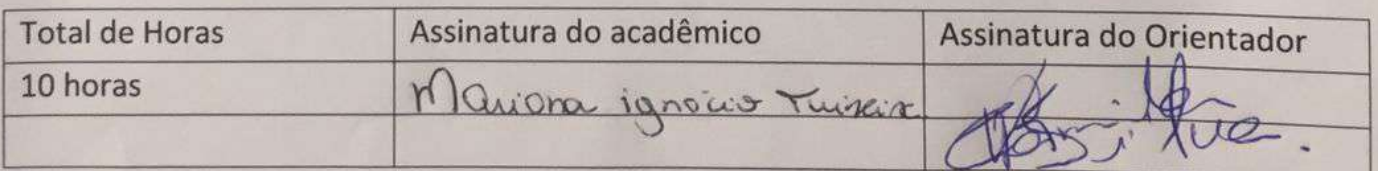 Total de Horas Assinatura do acadêmico Assinatura do Orientador
10 horas Mariana ignácio Teixeira